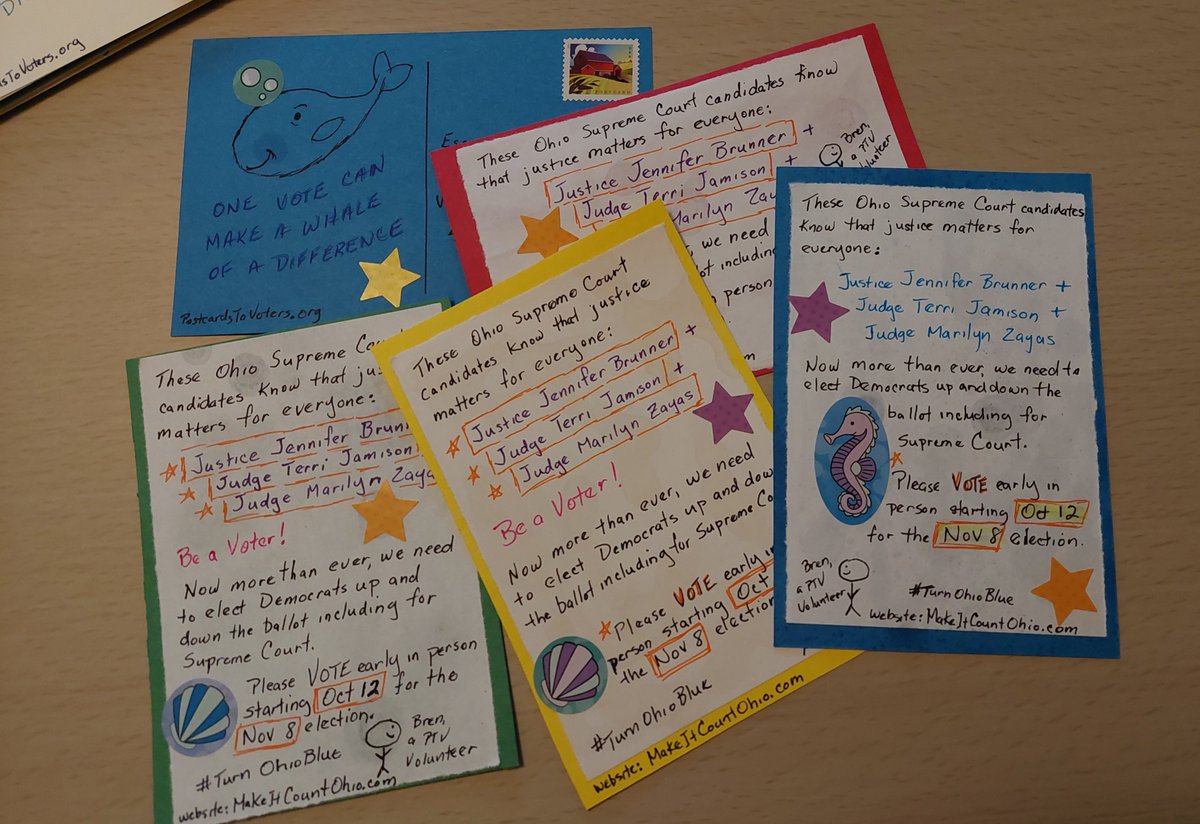 sToVoters.org
ONE VOTE CAN
MAKE A WHALE
OF A DIFFERENCE
PostcardsToVoters.org
These Ohio Supreme Court candidates know
that justice matters for everyone:
Justice Jennifer Brunner +
Judge Terri Jamison +
Marilyn Zayas
we need
ballot including
person
Bren,
a PTV
Volunteer
These Ohio Supreme Court candidates
know that justice matters for
everyone:
Justice Jennifer Brunner +
Judge Terri Jamison +
Judge Marilyn Zayas
Now more than ever, we need to
elect Democrats up and down the
ballot including for
Supreme Court.
Please VOTE early in
person starting Oct 12
for the Nov 8 election.
Bren,
a PTV
Volunteer
#TurnOhioBlue
website: MakeItCountOhio.com
These Ohio Supreme Cou
candidates know that jus
matters for everyone:
Justice Jennifer Brun
Judge Terri Jamison
Judge Marilyn Zayas
Be a Voter!
Now more than ever, we need
to elect Democrats up and
down the ballot including for
Supreme Court.
Please VOTE early in person
starting Oct 12 for the
Nov 8 election.
Bren,
a PTV
Volunteer
#TurnOhioBlue
website: MakeItCountOhio.com
These Ohio Supreme Court
candidates know that justice
matters for everyone:
Justice Jennifer Brunner +
Judge Terri Jamison +
Judge Marilyn Zayas
Be a Voter!
Now more than ever, we need
to elect Democrats up and dow
the ballot including for Supreme Cou
Please VOTE early in
person starting Oct
the Nov 8 election
#TurnOhioBlue
website: MakeItCountOhio.com